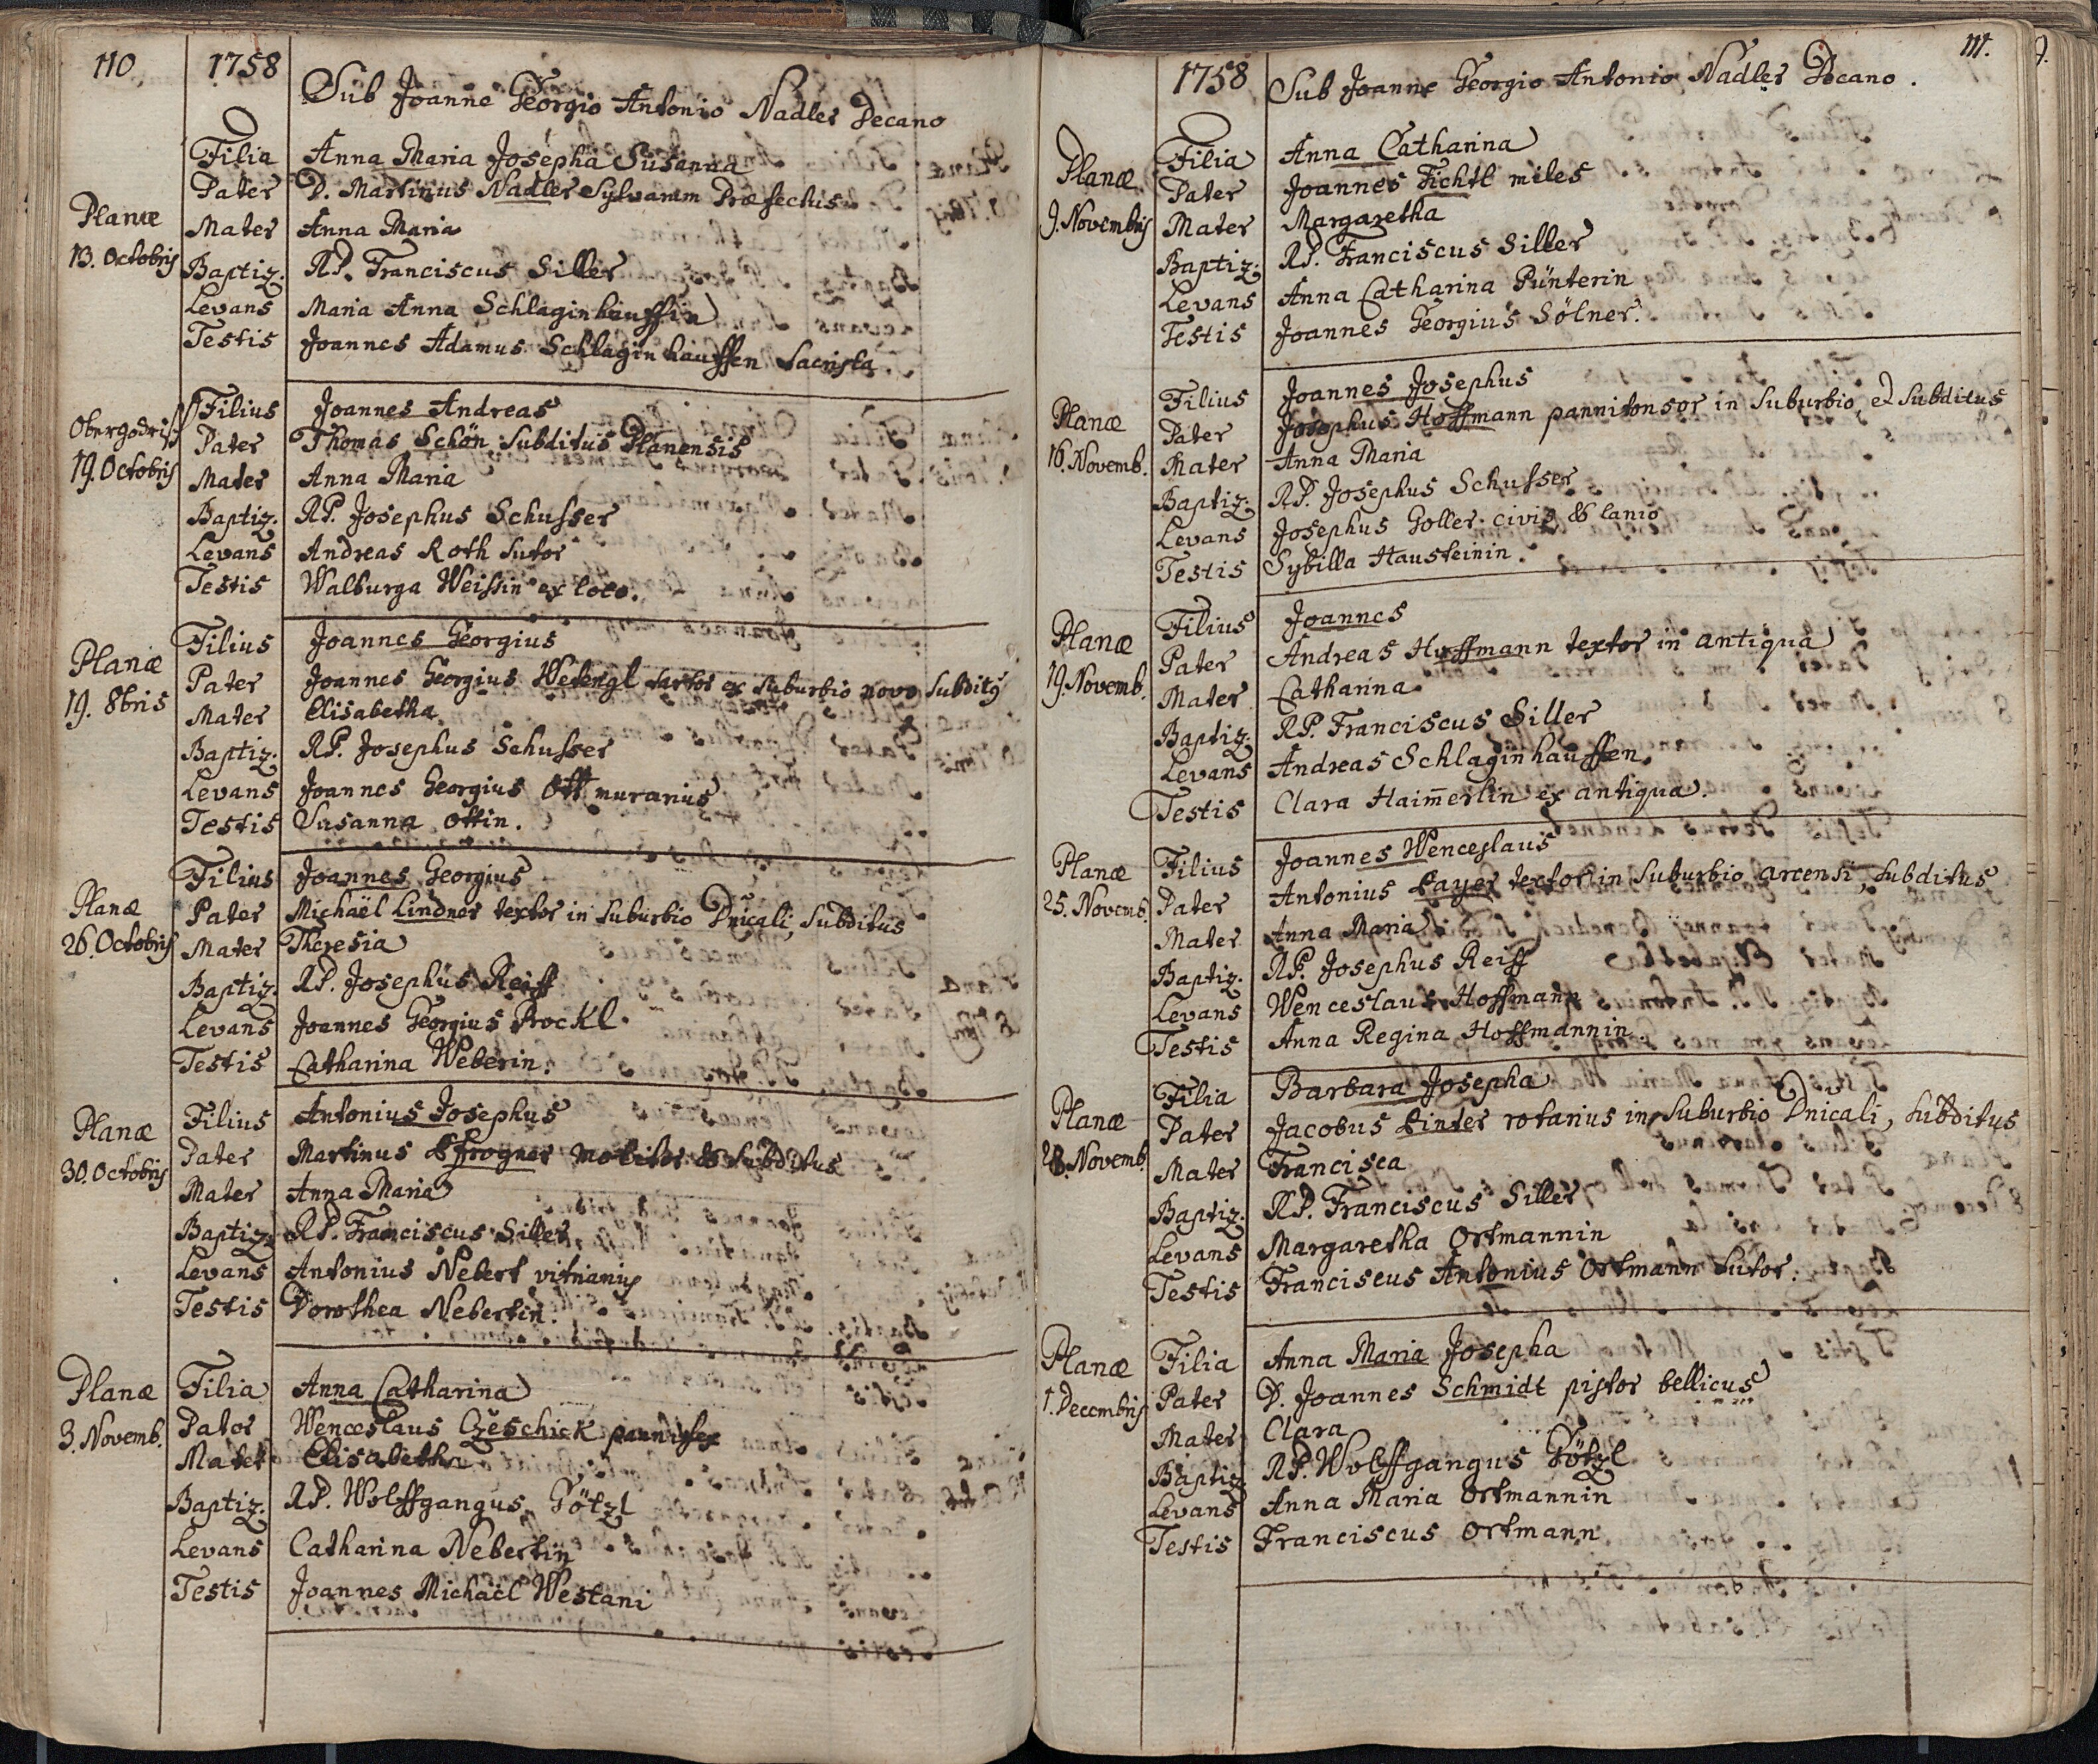 110 1758 Sub Joanne Georgio Antonio Nadler Decano
Filia Anna Maria Josepha Susanna
Pater D. Martinus Nadler Sylvarum Præfectus
Planæ Mater Anna Maria
13. Octobris Baptiz. RP. Franciscus Siller
Levans Maria Anna Schlaginhauffin
Testis Joannes Adamus Schlaginhauffen Sacrista
Filius Joannes Andreas
Obergodrisch Pater Thomas Schön Subditus Planensis
19. Octobris Mater Anna Maria
Baptiz. RP. Josephus Schusser
Levans Andreas Roth Sutor
Testis Walburga Weissin ex loco.
Filius Joannes Georgius
Planæ Pater Joannes Georgius Wetengl sartor ex suburbio novo subditus
19. 8bris Mater Elisabetha
Baptiz. RP. Josephus Schusser
Levans Joannes Georgius Ott murarius
Testis Susanna Ottin.
Filius Joannes Georgius
Planæ Pater Michaël Lindner textor in suburbio Dnicali, subditus
26. Octobris Mater Theresia
Baptiz. RP. Josephus Reiff
Levans Joannes Georgius Prockl.
Testis Catharina Weberin.
Filius Antonius Josephus
Planæ Pater Martinus Pfrogner molitor & subditus
30. Octobris Mater Anna Maria
Baptiz. RP. Franciscus Siller
Levans Antonius Nebert vitriarius
Testis Dorothea Nebertin.
Planæ Filia Anna Catharina
3. Novemb. Pater Wenceslaus Czeschick pannifex
Mater Elisabetha
Baptiz. RP. Wolffgangus Götzl
Levans Catharina Nebertin
Testis Joannes Michaël Westani
111.
1758 Sub Joanne Georgio Antonio Nadler Decano.
Filia Anna Catharina
Planæ Pater Joannes Fichtl miles
9. Novembris Mater Margaretha
Baptiz. RP. Franciscus Siller
Levans Anna Catharina Pünterin
Testis Joannes Georgius Sölner.
Filius Joannes Josephus
Planæ Pater Josephus Hoffmann pannitonsor in suburbio, et subditus
16. Novemb. Mater Anna Maria
Baptiz. RP. Josephus Schusser
Levans Josephus Goller civis & lanio
Testis Sybilla Hausteinin.
Filius Joannes
Planæ Pater Andreas Hoffmann textor in antiqua
19. Novemb. Mater Catharina
Baptiz. RP. Franciscus Siller
Levans Andreas Schlaginhauffen
Testis Clara Haim̄erlin ex antiqua.
Planæ Filius Joannes Wenceslaus
25. Novemb. Pater Antonius Payer textor in suburbio arcensi, subditus
Mater Anna Maria
Baptiz. RP. Josephus Reiff
Levans Wenceslaus Hoffmann
Testis Anna Regina Hoffmannin
Filia Barbara Josepha
Planæ Pater Jacobus Pinter rotarius in suburbio Dnicali, subditus
28. Novemb. Mater Francisca
Baptiz. RP. Franciscus Siller
Levans Margaretha Ortmannin
Testis Franciscus Antonius Ortmann sutor.
Planæ Filia Anna Maria Josepha
1. Decembris Pater D. Joannes Schmidt pistor bellicus
Mater Clara
Baptiz. RP. Wolffgangus Götzl
Levans Anna Maria Ortmannin
Testis Franciscus Ortmann